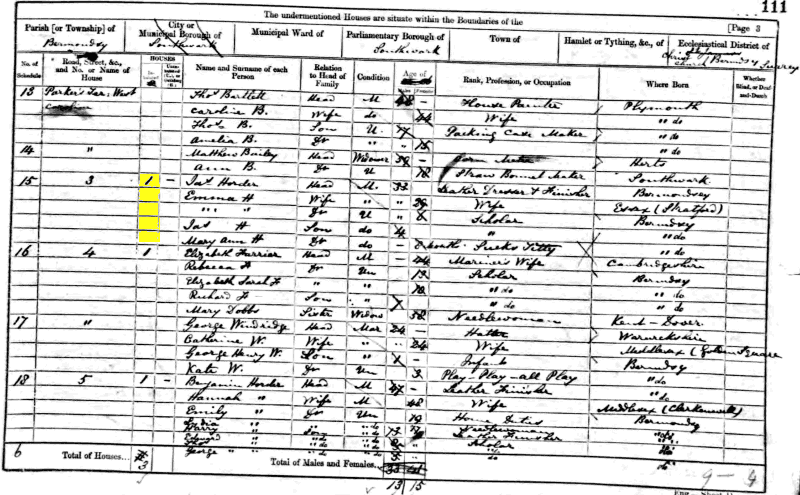 111
The undermentioned Houses are situate within the Boundaries of the
[Page 3
Parish [or Township] of
Bermondsey
City or Municipal Borough of
Southwark
Municipal Ward of
Parliamentary Borough of
Southwark
Town of
Hamlet or Tything, &c., of
Ecclesiastical District of
Christ Church Bermdsy Surrey
No. of Schedule
Road, Street, &c., and No. or Name of House
HOUSES
Name and Surname of each Person
Relation to Head of Family
Condition
Age of
Males
Females
Rank, Profession, or Occupation
Where Born
Whether Blind, or Deaf-and-Dumb
13 Parker's West Thos Bartlett Head M 48 – House Painter Plymouth
Caroline B. Wife do 44 Wife " do
Thos B. Son U. Packing Case Maker " do
Amelia B. Dr " 15 " do
14 " Matthew Bailey Head Widower 38 – Herts
Ann B. Dr U 18 Straw Bonnet Maker Southwark
15 3 1 – Jas Horder Head M. 33 Leather Dresser & Finisher Bermondsey
Emma H Wife " 29 Wife Essex (Stratford)
" " " Dr U " 8 Scholar Bermdsy
Jas H Son do 4 " " do
Mary Ann H Dr do – 8 month Sucks Titty " do
16 4 1 Elizabeth Farrier Head M – 44 Mariner's Wife Cambridgeshire
Rebecca F Dr Un 13 Scholar Bermdsy
Elizabeth Sarah F " " 10 " do " do
Richard F Son " " do " do
Mary Dobbs Sister Widow 38 Needlewoman Kent – Dover
17 " George Windridge Head Mar 24 – Hatter Warwickshire
Catherine W. Wife " " 24 Wife Middlesex (Golden Square
George Henry W. Son " 1 – Infant Bermdsy
Kate W. Dr Un 3 Play – Play – all Play " do
18 5 1 – Benjamin Horder Head M 47 – Leather Finisher " do
Hannah " Wife M 48 Wife Middlesex (Clerkenwell)
Emily " Dr Un 19 Home Duties Bermondsy
Lydia
Harry " Son " do Leather Finisher
Edward " do Scholar
Thos " do
George " " " do
6 Total of Houses... 3
Total of Males and Females...
13 15
9 – 4